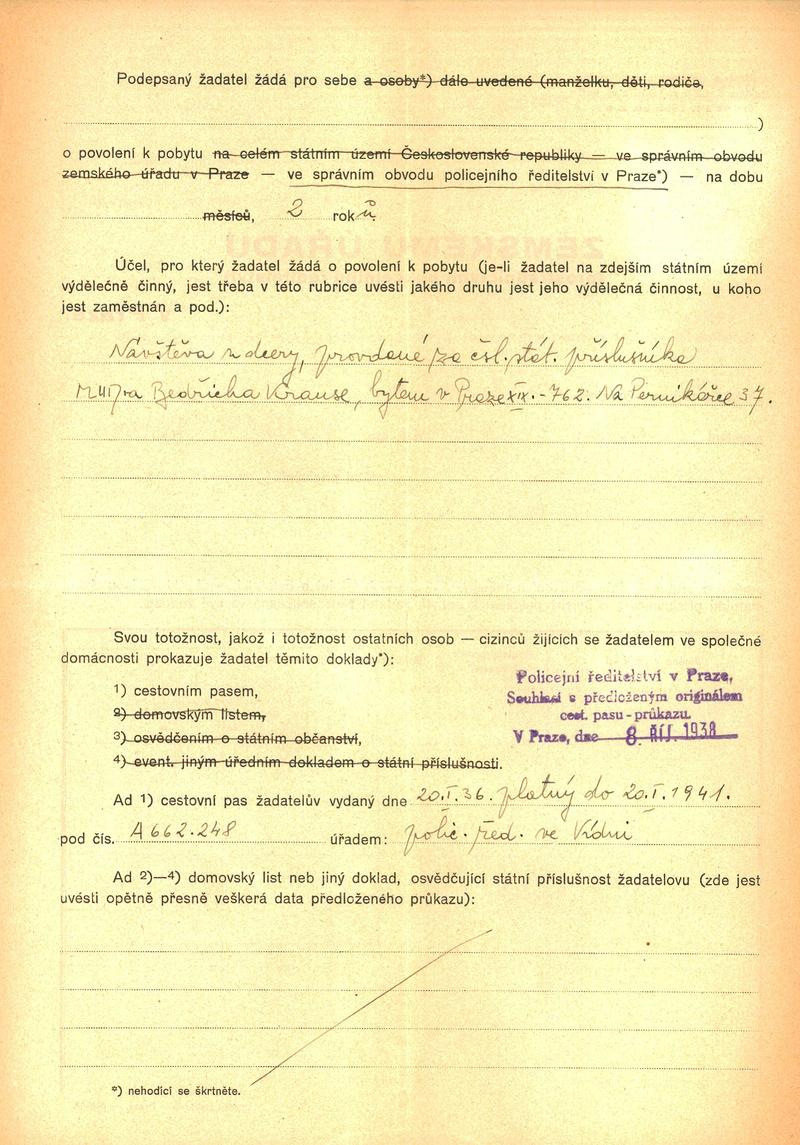 Podepsaný žadatel žádá pro sebe a osoby*) dále uvedené (manželku, děti, rodiče,
)
o povolení k pobytu na celém státním území Československé republiky — ve správním obvodu
zemského úřadu v Praze — ve správním obvodu policejního ředitelství v Praze*) — na dobu
měsíců, 2 roků
Účel, pro který žadatel žádá o povolení k pobytu (je-li žadatel na zdejším státním území
výdělečně činný, jest třeba v této rubrice uvésti jakého druhu jest jeho výdělečná činnost, u koho
jest zaměstnán a pod.):
Návštěva u dcery, provdané za čsl. stát. příslušníka
MUDra Bedřicha Krause, bytem v Praze XIX.-762. Na Perníkářce 37.
Svou totožnost, jakož i totožnost ostatních osob — cizinců žijících se žadatelem ve společné
domácnosti prokazuje žadatel těmito doklady*):
Policejní ředitelství v Praze,
Souhlasí s předloženým originálem
cest. pasu - průkazu.
V Praze, dne 8. ŘÍJ. 1938
1) cestovním pasem,
2) domovským listem,
3) osvědčením o státním občanství,
4) event. jiným úředním dokladem o státní příslušnosti.
Ad 1) cestovní pas žadatelův vydaný dne 20.I.36. platný do 20.I.1941.
pod čís. A 662.248 úřadem: polic. řed. ve Vídni
Ad 2)—4) domovský list neb jiný doklad, osvědčující státní příslušnost žadatelovu (zde jest
uvésti opětně přesně veškerá data předloženého průkazu):
*) nehodící se škrtněte.